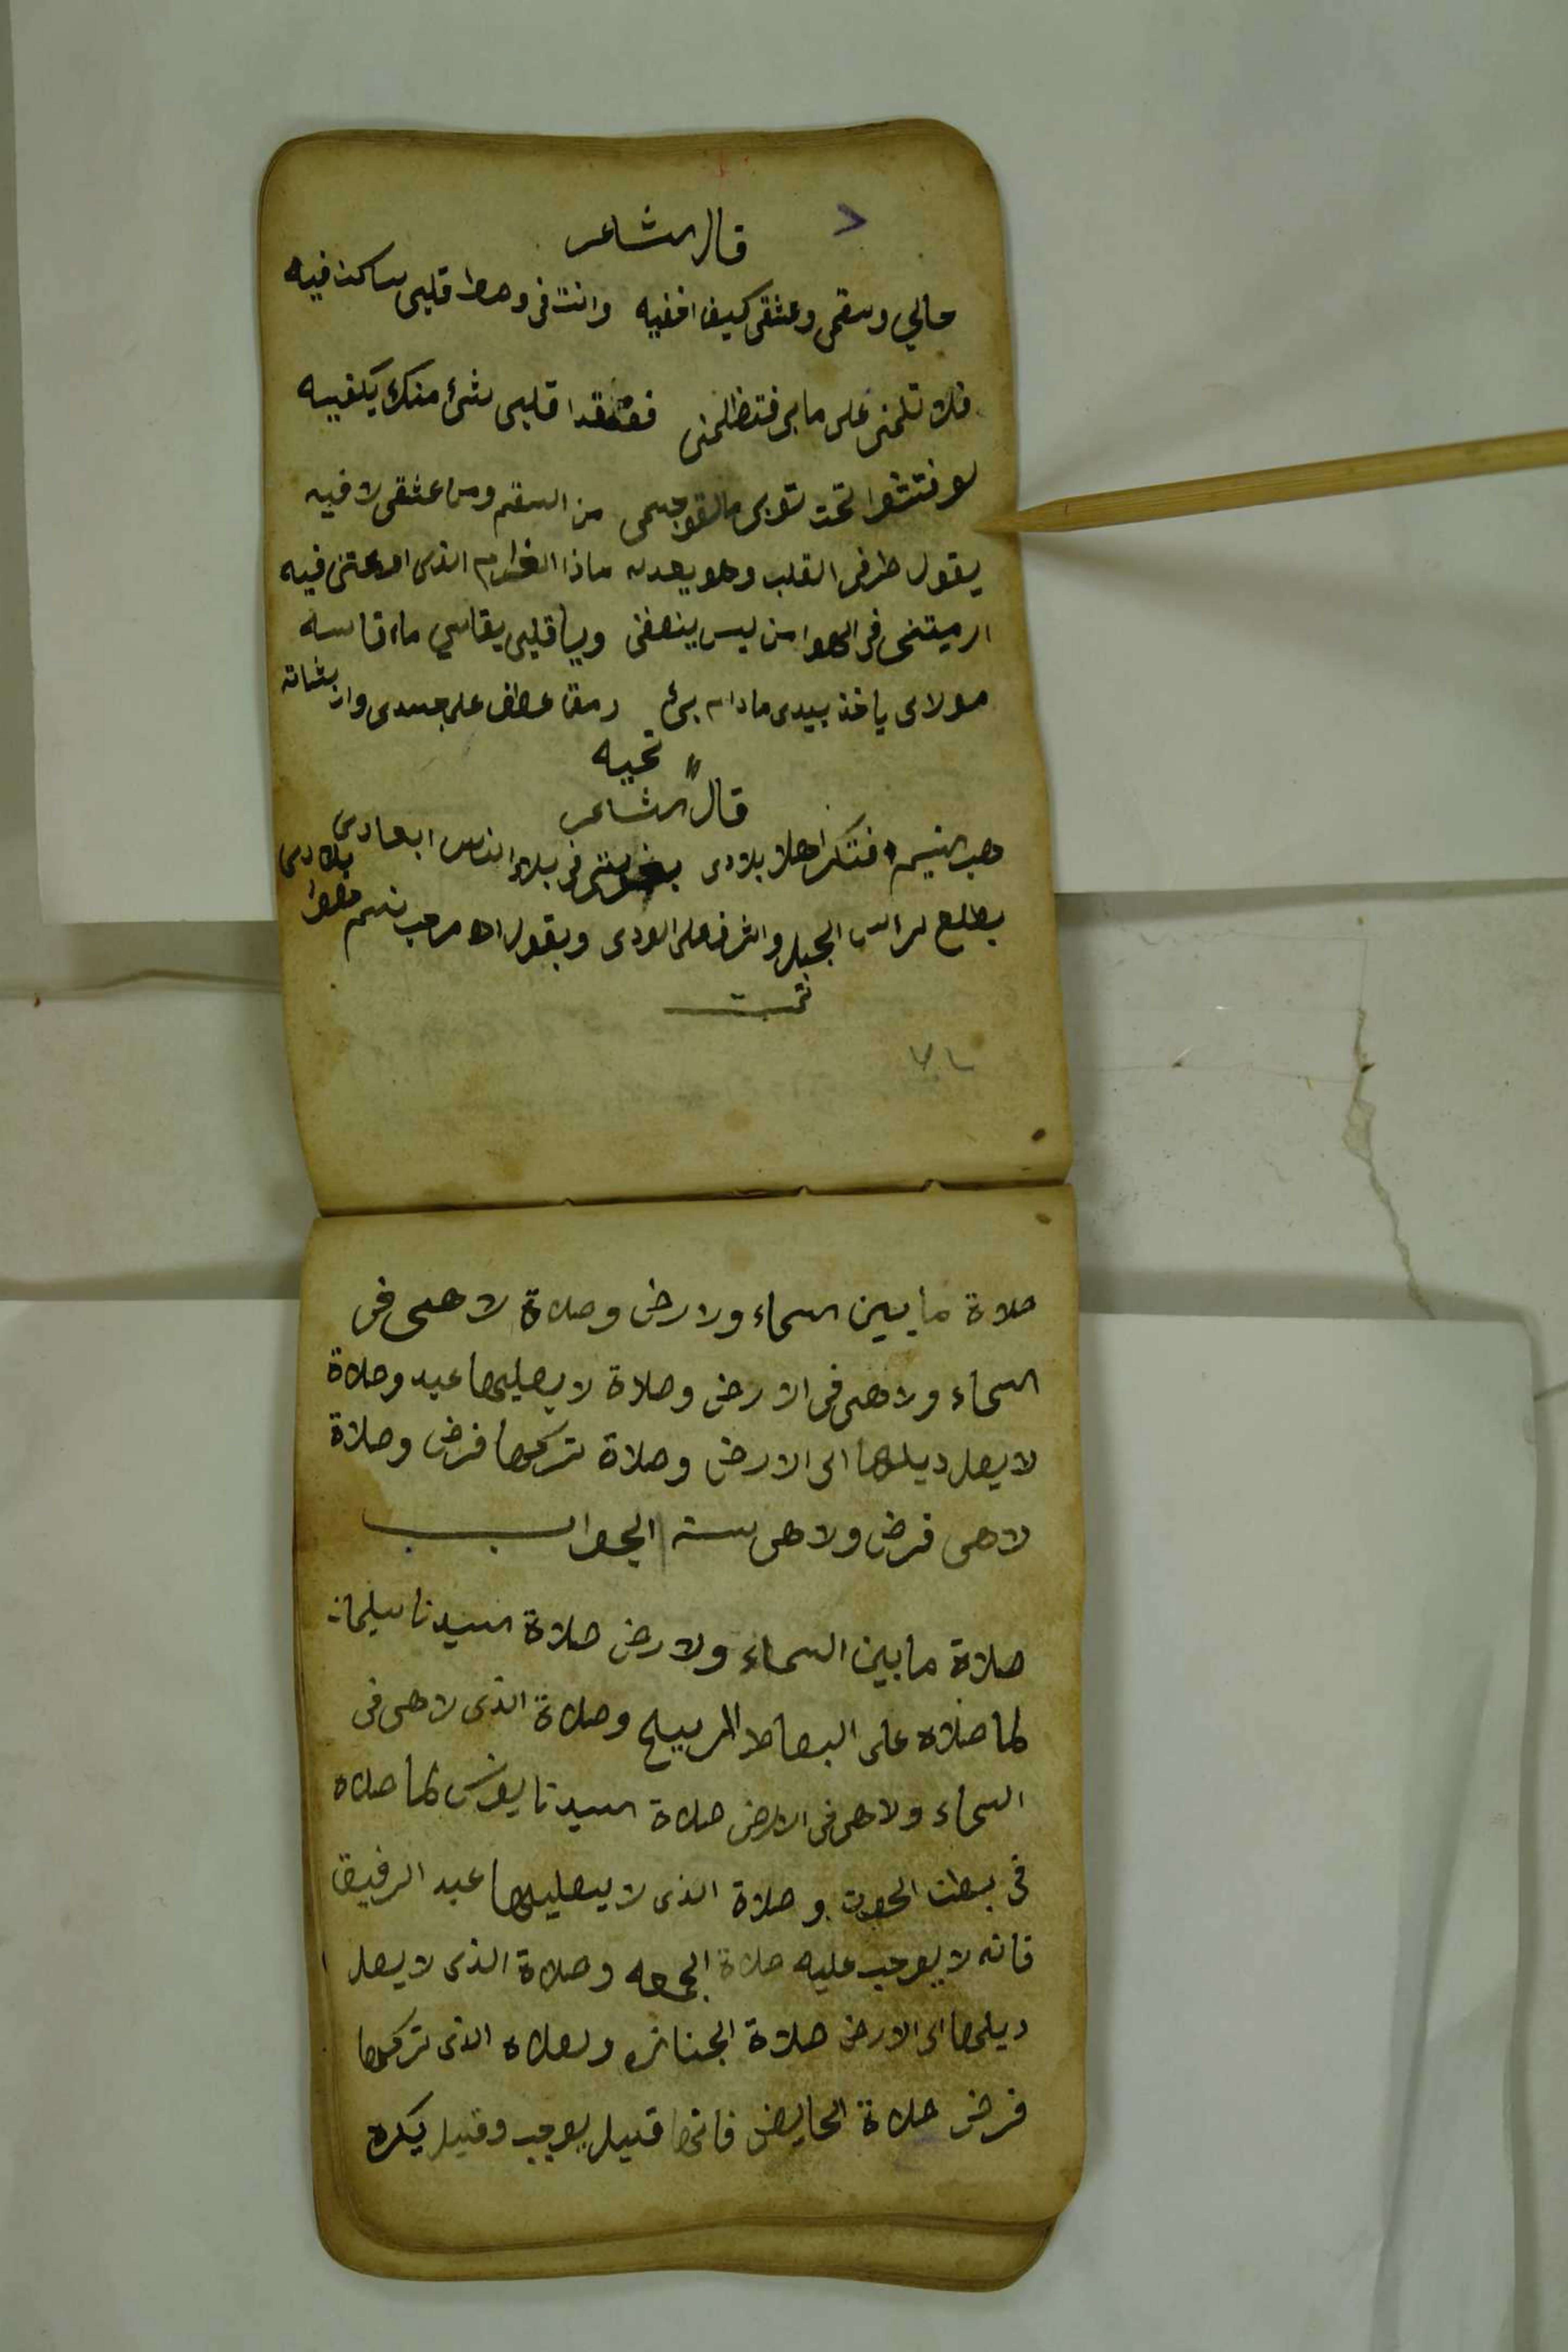 قال الشاعر
حالي وسقمى وعشقى كيف اخفيه وانت فى وسط قلبى ساكن فيه
فلا تلمنى على ما بى فتظلمنى قلبى شئ منك يكفيه
لو فتشوا تحت توبى ما لقو جسمى من السقم ومن عشقى لا فيه
يقول طرفى القلب وهو يعدله ماذا الغرام الذى اودعتنى فيه
ارميتنى فى الهوا من ليس ينصفنى ويا قلبى يقاسي ما اقاسه
مولاى ياخذ بيدى مادام بى رمقا عطف على جسدى وان شاته
تحييه
قال الشاعر
هب النسيم فتكر اهلا بلادى بغربتى فى بلاد الناس ابعادى
يطلع لراس الجبل واشرف على الودى ويقول اه مرحب نسم هوا بلادى
تمت
٧٢
صلاة ما بين السماء ولارض وصلاة لا هى فى
السماء ولا هى فى الارض وصلاة لا يصليها عبد وصلاة
لا يصل ديلها الى الارض وصلاة تركها فرض وصلاة
لا هى فرض ولا هى سنه الجواب
صلاة ما بين السماء ولارض صلاة السيدنا سليمان
لما صلاه على البصاط المربيح وصلاة الذى لا هى فى
السماء ولا هى فى الارض صلاة السيدنا يونس لما صلاه
فى بطن الحوت وصلاة الذى لا يصليها عبد الرفيق
فانه لا يوجب عليه صلاة الجمعه وصلاة الذى لا يصل
ديلها الى الارض صلاة الجنازه ولصلاه الذى تركها
فرض صلاة الحايض فانها قبيل يوجب وقيل يكره